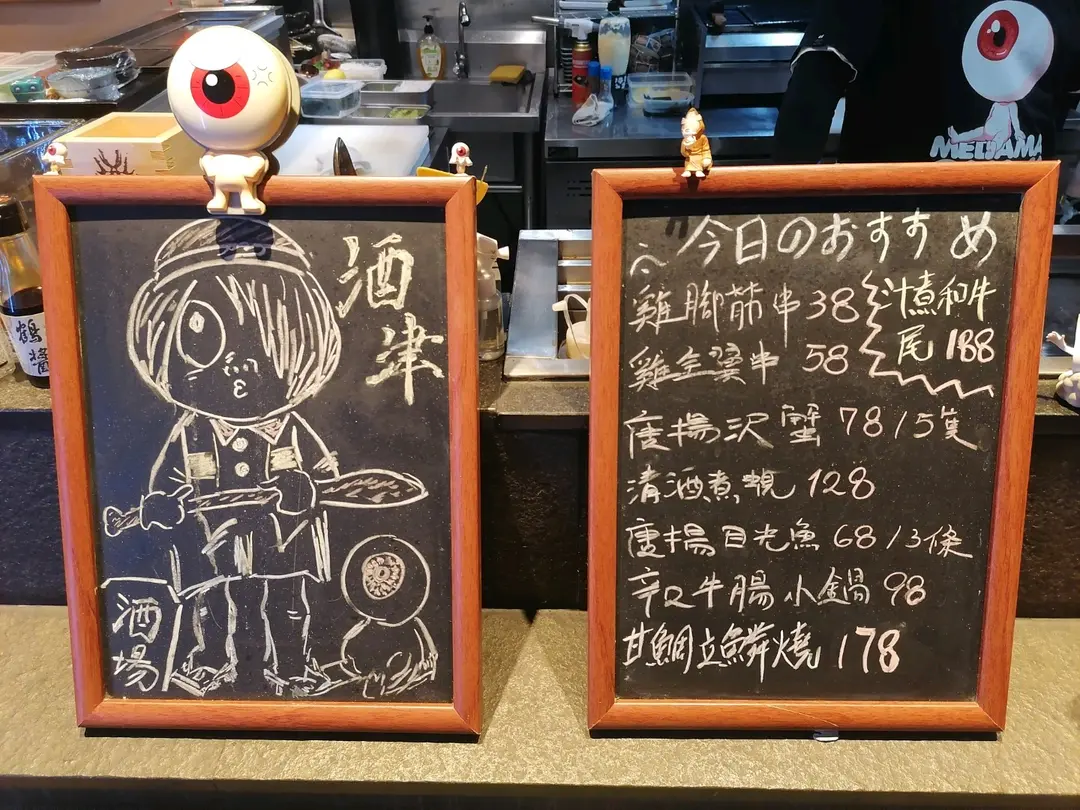 酒
津
酒
場
今日のおすすめ
雞脚筋串 38
汁煮和牛
尾 188
雞全翼串 58
唐揚沢蟹 78/5隻
清酒煮蜆 128
唐揚目光魚 68/3條
辛口牛腸小鍋 98
甘鯛立鱗燒 178
MEDAMA
鶴
醬